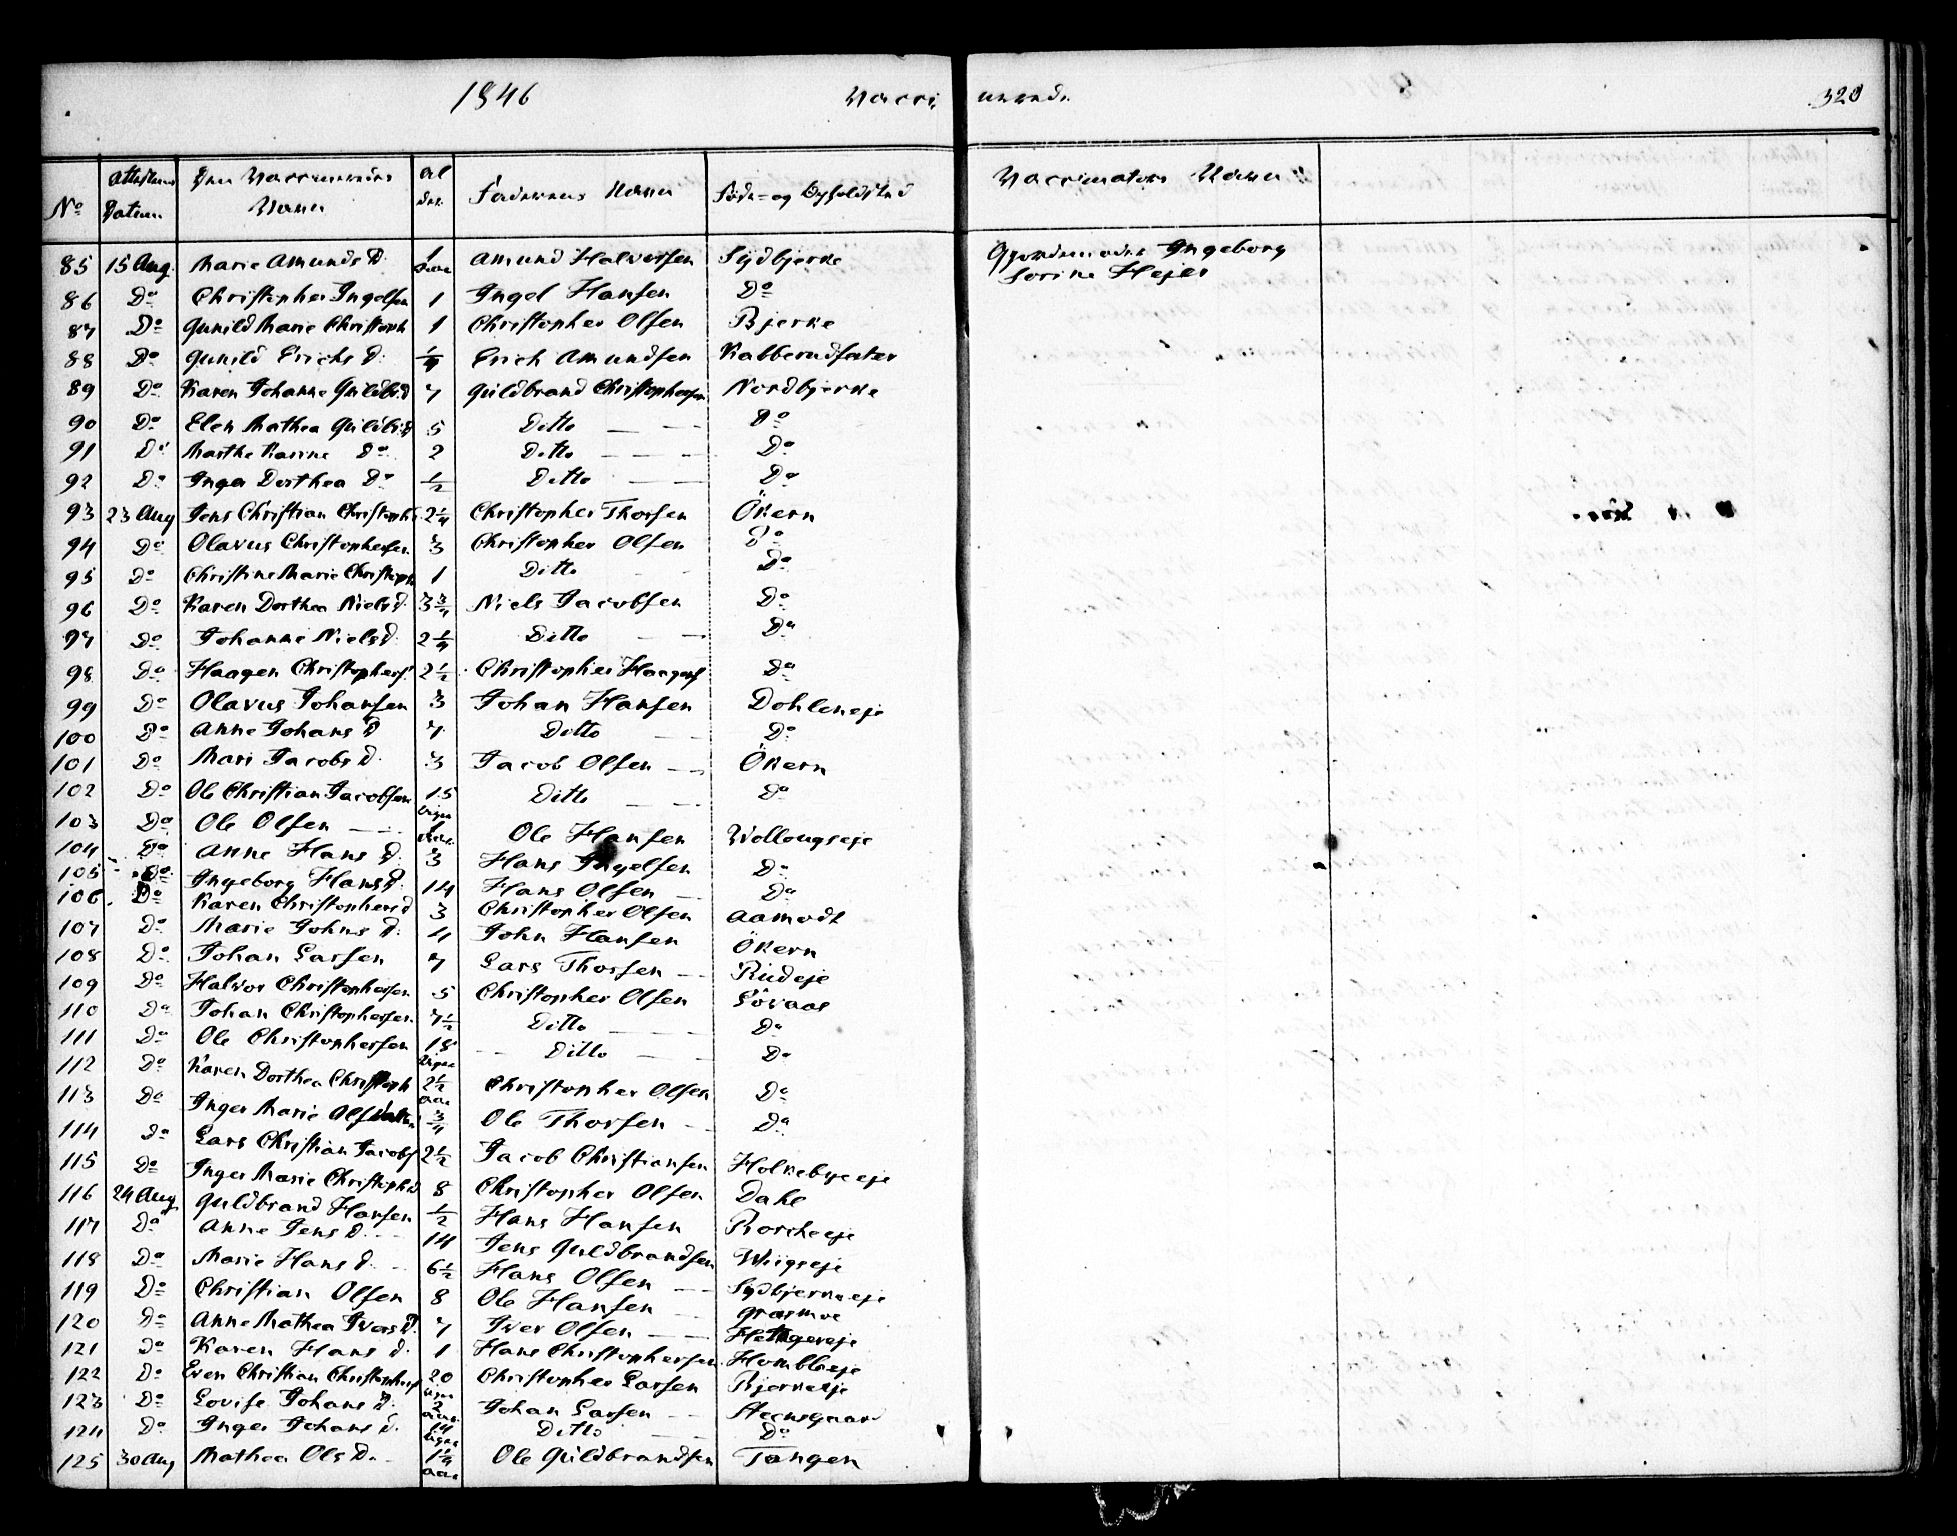 1846 Vacci nerede 320
No Attestens Datum Den Vaccineredes Navn Al der Faderens Navn Föde- og Opholdsted Vaccinatörs Navn
85 15 Aug. Marie Amunds D. 1 Aar Amund Halvorsen Sydbjerke Gjordemoder Ingeborg
Sorine Hejer
86 Do Christopher Ingelsen 1 Ingel Hansen Do
87 Do Gunild Marie Christoph 1 Christopher Olsen Bjerke
88 Do Gunild Erichs D. 1/4 Erich Amundsen Kabberudsæter
89 Do Karen Johanne Guldbr.D 7 Guldbrand Christophersen Nordbjerke
90 Do Elen Mathea Guldbr.D 5 Ditto Do
91 Do Marthe Karine Do 2 Ditto Do
92 Do Inger Dorthea Do 1/2 Ditto Do
93 23 Aug Jens Christian Christophs. 2 1/4 Christopher Thorsen Ökern
94 Do Olavus Christophersen 3 Christopher Olsen Do
95 Do Christine Marie Christoph 1 Ditto Do
96 Do Karen Dorthea Niels d. 3 3/4 Niels Jacobsen Do
97 Do Johanne Niels d. 2 1/4 Ditto Do
98 Do Haagen Christophers. 2 1/2 Christopher Haagens Do
99 Do Olavus Johansen 3 Johan Hansen Dohleneje
100 Do Anne Johans D 7 Ditto Do
101 Do Mari Jacobs D. 3 Jacob Olsen Ökern
102 Do Ole Christian Jacobsen 15 Uger Ditto Do
103 Do Ole Olsen 1 Aar Ole Hansen Wollougseje
104 Do Anne Hans D. 3 Hans Ingelsen Do
105 Do Ingeborg Hans D. 14 Hans Olsen Do
106 Do Karen Christophers d 3 Christopher Olsen Aamodt
107 Do Marie Johns D. 4 John Hansen Ökern
108 Do Johan Larsen 7 Lars Thorsen Rudeje
109 Do Halvor Christophersen 5 Christopher Olsen Lövaas
110 Do Johan Christophersen 7 1/2 Ditto Do
111 Do Ole Christophersen 18 Uger Ditto Do
112 Do Karen Dorthea Christoph 2 1/2 Aar Christopher Olsen Do
113 Do Inger Marie Olsdatter 3/4 Ole Thorsen Do
114 Do Lars Christian Jacobs 2 1/2 Jacob Christiansen Holkebyeeje
115 Do Inger Marie Christophd 8 Christopher Olsen Dahl
116 24 Aug Guldbrand Hansen 1/2 Hans Hansen Borcheeje
117 Do Anne Jens D. 14 Jens Guldbrandsen Wiigseje
118 Do Marie Hans d. 6 1/2 Hans Olsen Sydbjerkeeje
119 Do Christian Olsen 8 Ole Hansen Grasmoe
120 Do Anne Mathea Ivers D. 7 Iver Olsen
121 Do Karen Hans d. 1 Hans Christophersen Hombleeje
122 Do Even Christian Christophers 20 Uger Christopher Larsen Bjerkeeje
123 Do Lovise Johans D. 2 Aar Johan Larsen Steensgaard
124 Do Inger Johans d. 14 Uger Ditto Do
125 30 Aug Mathea Ols D. 1 1/4 Aar Ole Guldbrandsen Tangen